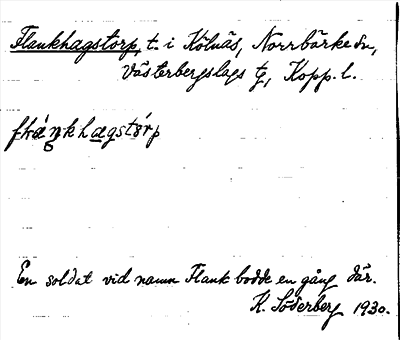 Flankhagstorp, t. i Kölnäs, Norrbärke sn,
Västerbergslags tg, Kopp. l.
En soldat vid namn Flank bodde en gång där.
K. Söderberg 1930.